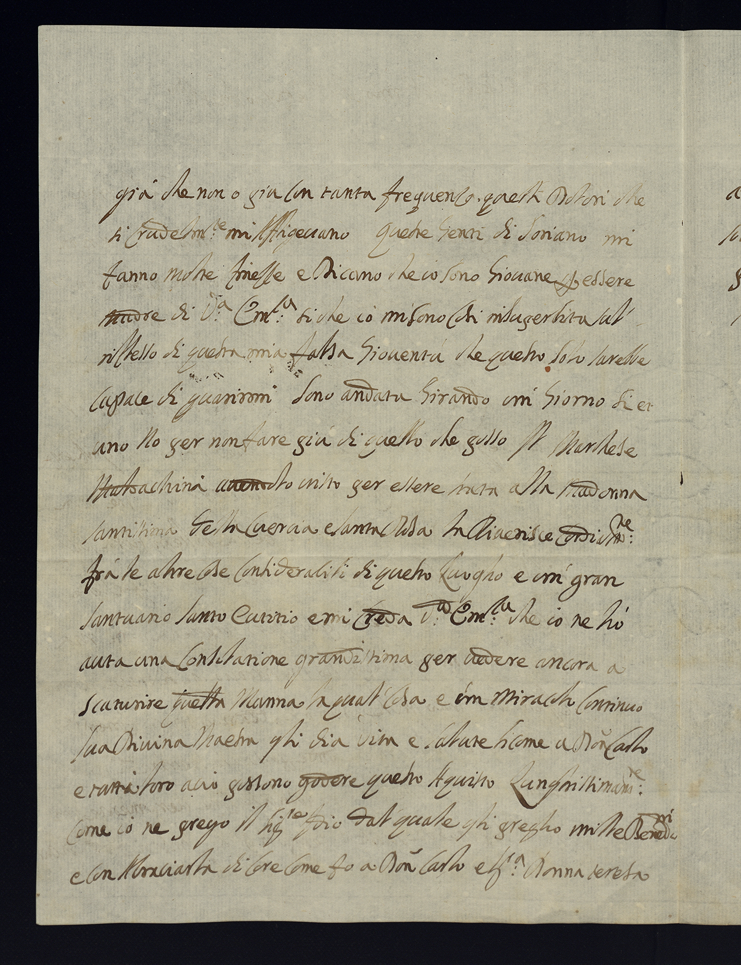 già che non o gia con tanta frequenza questi Dolori che
si crudelm:te mi afficevano queste Genti di Soriano mi
fanno molte finesse e Dicano che io sono Giovane p essere
madre di V:a Em:za si che io mi sono Così
di questa mia falsa Gioventù che questo solo sarebbe
Capace di guarirmi sono andata Girando un Giorno si et
uno No per non fare più di quello che posso Il Marchese
visto per essere stata alla Madonna
Santissima della Cuercia e Santa Rosa la Riverisce
frà le altre Cose Considerabili di questo Luogho e un gran
Santuario Santo Eutitio e mi Creda V:a Em:za che io ne hò
auta una Consolatione grandissima per vedere ancora a
scaturire quella Manna la qual Cosa e un Miracolo Continuo
Sua Divina Maestà gli dia vita e salute si come a Don Carlo
e tutti loro aciò possono godere questo Aquisto Lunghissimam:te
Come io ne prego il Sig:re Idio dal quale gli pregho mille
e con di Core Come fo a Don Carlo e Donna Teresa